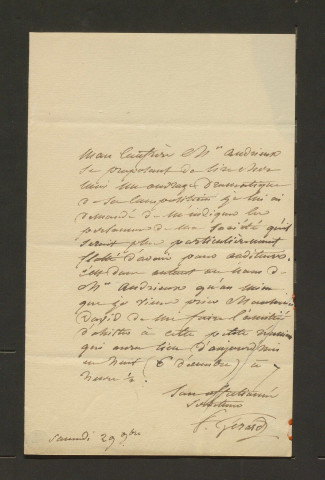 Mon Confrère Mr Andrieux
se proposant de lire chez
moi un ouvrage Dramatique
de sa Composition je lui ai
demandé de m'indiquer les
personnes de ma société qu'il
serait plus particulièrement
flatté d'avoir pour auditeurs.
C'est donc autant au nom de
Mr Andrieux qu'au mien
que je viens prier Monsieur
David de me faire l'amitié
d'assister à cette petite réunion
qui aura lieu d'aujourd'hui
en huit (6 décembre) à 7
heures ½.
Son affectionné
Serviteur
F. Gérard
Samedi 29 9bre